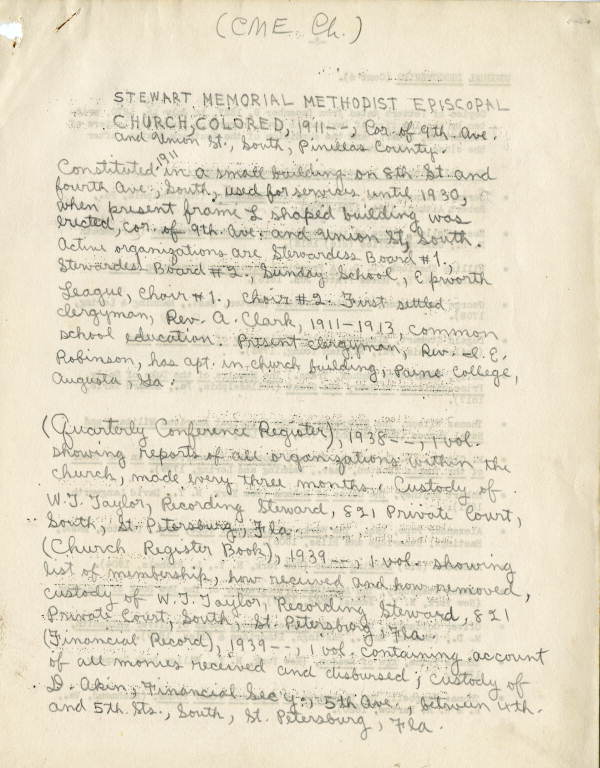 (CME Ch.)
STEWART MEMORIAL METHODIST EPISCOPAL
CHURCH, COLORED, 1911--, Cor. of 9th. Ave.
and Union St., South, Pinillas County.
Constituted 1911 in a small building on 8th. St. and
fourth Ave., South, used for services until 1930,
when present frame L shaped building was
erected, cor. of 9th. Ave. and Union St., South.
Active organizations are Stewardess Board #1.,
Stewardess Board #2., Sunday School, Epworth
League, Choir #1., Choir #2. First settled
clergyman, Rev. A. Clark, 1911-1913, common
school education. Present clergyman, Rev. E.
Robinson, has apt. in church building, Paine College,
Augusta, Ga.
(Quarterly Conference Register), 1938--, 1 vol.
showing reports of all organizations within the
church, made every three months. Custody of
W.T. Taylor, Recording Steward, 821 Private Court,
South, St. Petersburg, Fla.
(Church Register Book), 1939--, 1 vol. showing
list of membership, how received and how removed,
custody of W.T. Taylor, Recording Steward, 821
Private Court, South, St. Petersburg, Fla.
(Financial Record), 1939--, 1 vol. containing account
of all monies received and disbursed; custody of
D. Akin, Financial Sec'y., 5th Ave., between 4th.
and 5th. Sts., South, St. Petersburg, Fla.